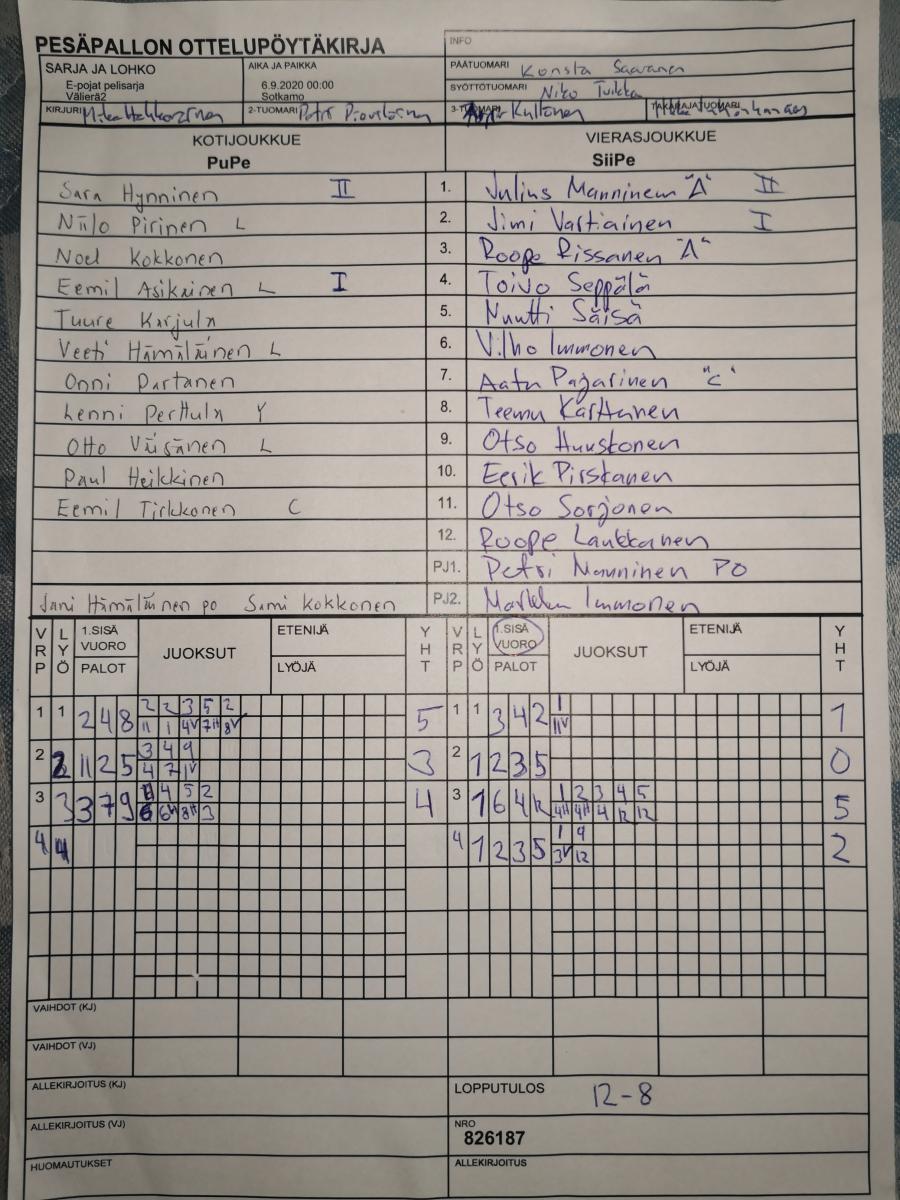 PESÄPALLON OTTELUPÖYTÄKIRJA
INFO
SARJA JA LOHKO
E-pojat pelisarja
Välierä2
AIKA JA PAIKKA
6.9.2020 00:00
Sotkamo
PÄÄTUOMARI Konsta Saavanen
SYÖTTÖTUOMARI Niko Tuikka
KIRJURI Mika
2-TUOMARI Petri
3-TUOMARI Kultonen
TAKARAJATUOMARI
KOTIJOUKKUE
PuPe
VIERASJOUKKUE
SiiPe
Sara Hynninen II 1. Julius Manninem "A" II
Niilo Pirinen L 2. Jimi Vartiainen I
Noel Kokkonen 3. Roope Rissanen "A"
Eemil Asikainen L I 4. Toivo Seppälä
Tuure Karjula 5. Nuutti Säisä
Veeti Hämäläinen L 6. Vilho Immonen
Onni Partanen 7. Aatu Pajarinen "C"
Lenni Perttula Y 8. Teemu Karttunen
Otto Väisänen L 9. Otso Huuskonen
Paul Heikkinen 10. Eerik Pirskanen
Eemil Tirkkonen C 11. Otso Sorjonen
12. Roope Laukkanen
PJ1. Petri Manninen PO
Jani Hämäläinen po Sami Kokkonen PJ2. Markku Immonen
VRP LYÖ 1.SISÄ VUORO PALOT JUOKSUT ETENIJÄ LYÖJÄ YHT VRP LYÖ 1.SISÄ VUORO PALOT JUOKSUT ETENIJÄ LYÖJÄ YHT
2 2 3 5 2 1
1 1 2 4 8 5 1 1 3 4 2 1
11 1 4V 7H 8V 11V
3 4 9
2 2 11 2 5 3 2 1 2 3 5 0
4 7 1V
4 5 2 1 2 3 4 5
3 3 3 7 9 4 3 1 6 4 12 5
6 6H 8H 3 4H 4H 4 12 12
1 9
4 4 4 1 2 3 5 2
3V 12
VAIHDOT (KJ)
VAIHDOT (VJ)
ALLEKIRJOITUS (KJ)
LOPPUTULOS 12-8
ALLEKIRJOITUS (VJ)
NRO
826187
HUOMAUTUKSET
ALLEKIRJOITUS